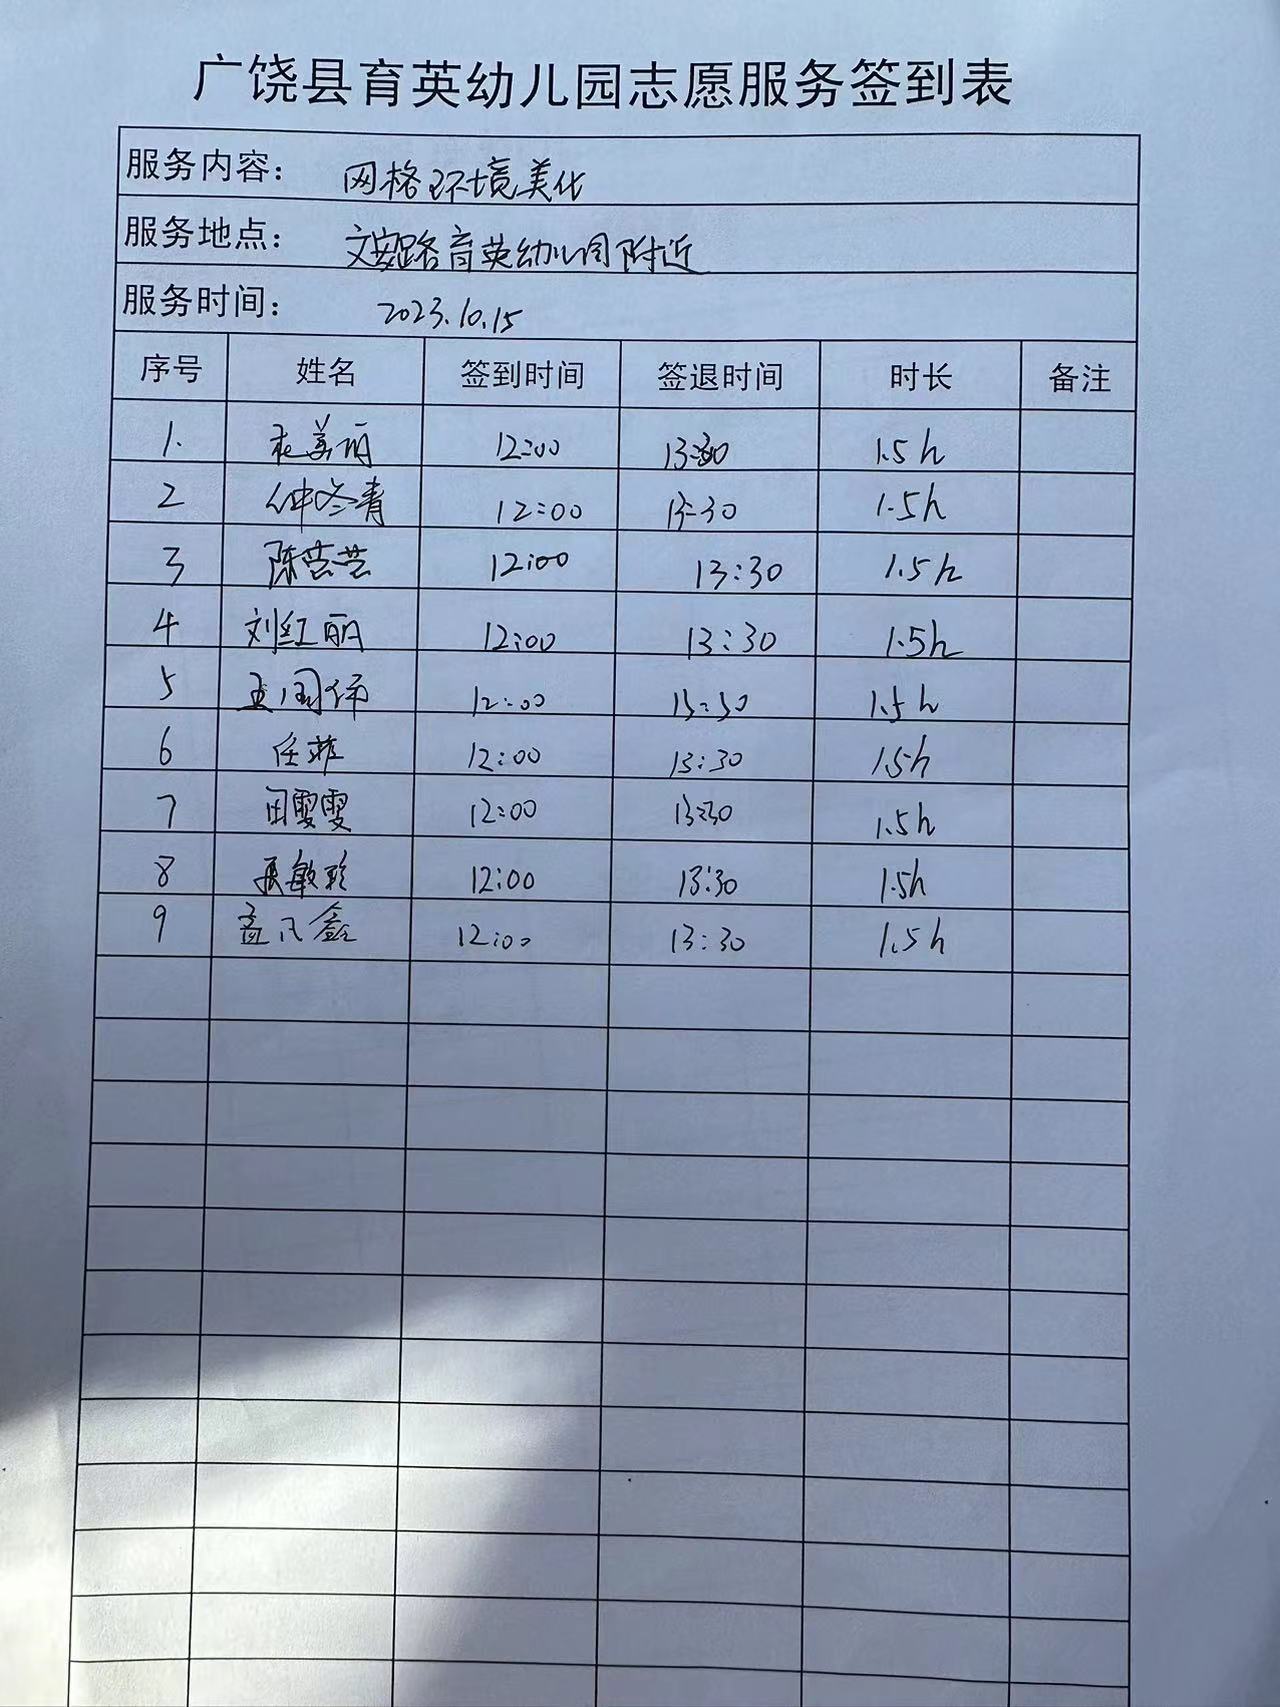 广饶县育英幼儿园志愿服务签到表
服务内容： 网格环境美化
服务地点： 文安路育英幼儿园附近
服务时间： 2023.10.15
序号 姓名 签到时间 签退时间 时长 备注
1. 美丽 12:00 13:30 1.5h
2 仲冬青 12:00 13:30 1.5h
3 陈芸芸 12:00 13:30 1.5h
4 刘红丽 12:00 13:30 1.5h
5 12:00 13:30 1.5h
6 任菲 12:00 13:30 1.5h
7 田雯雯 12:00 13:30 1.5h
8 张敏 12:00 13:30 1.5h
9 鑫 12:00 13:30 1.5h